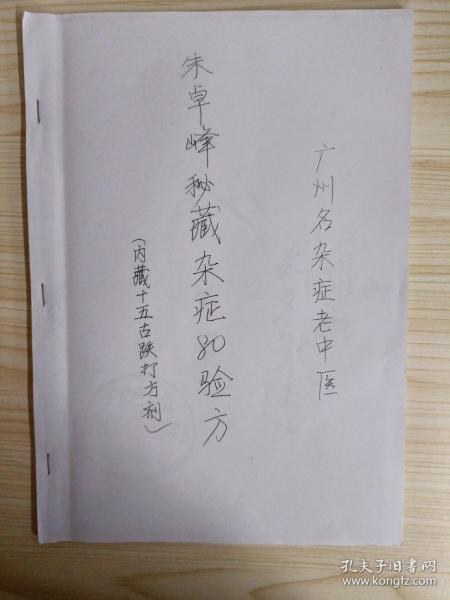 广州名杂症老中医
朱卓峰秘藏杂症80验方
（内藏十五古跌打方剂）
孔夫子旧书网
www.kongfz.com